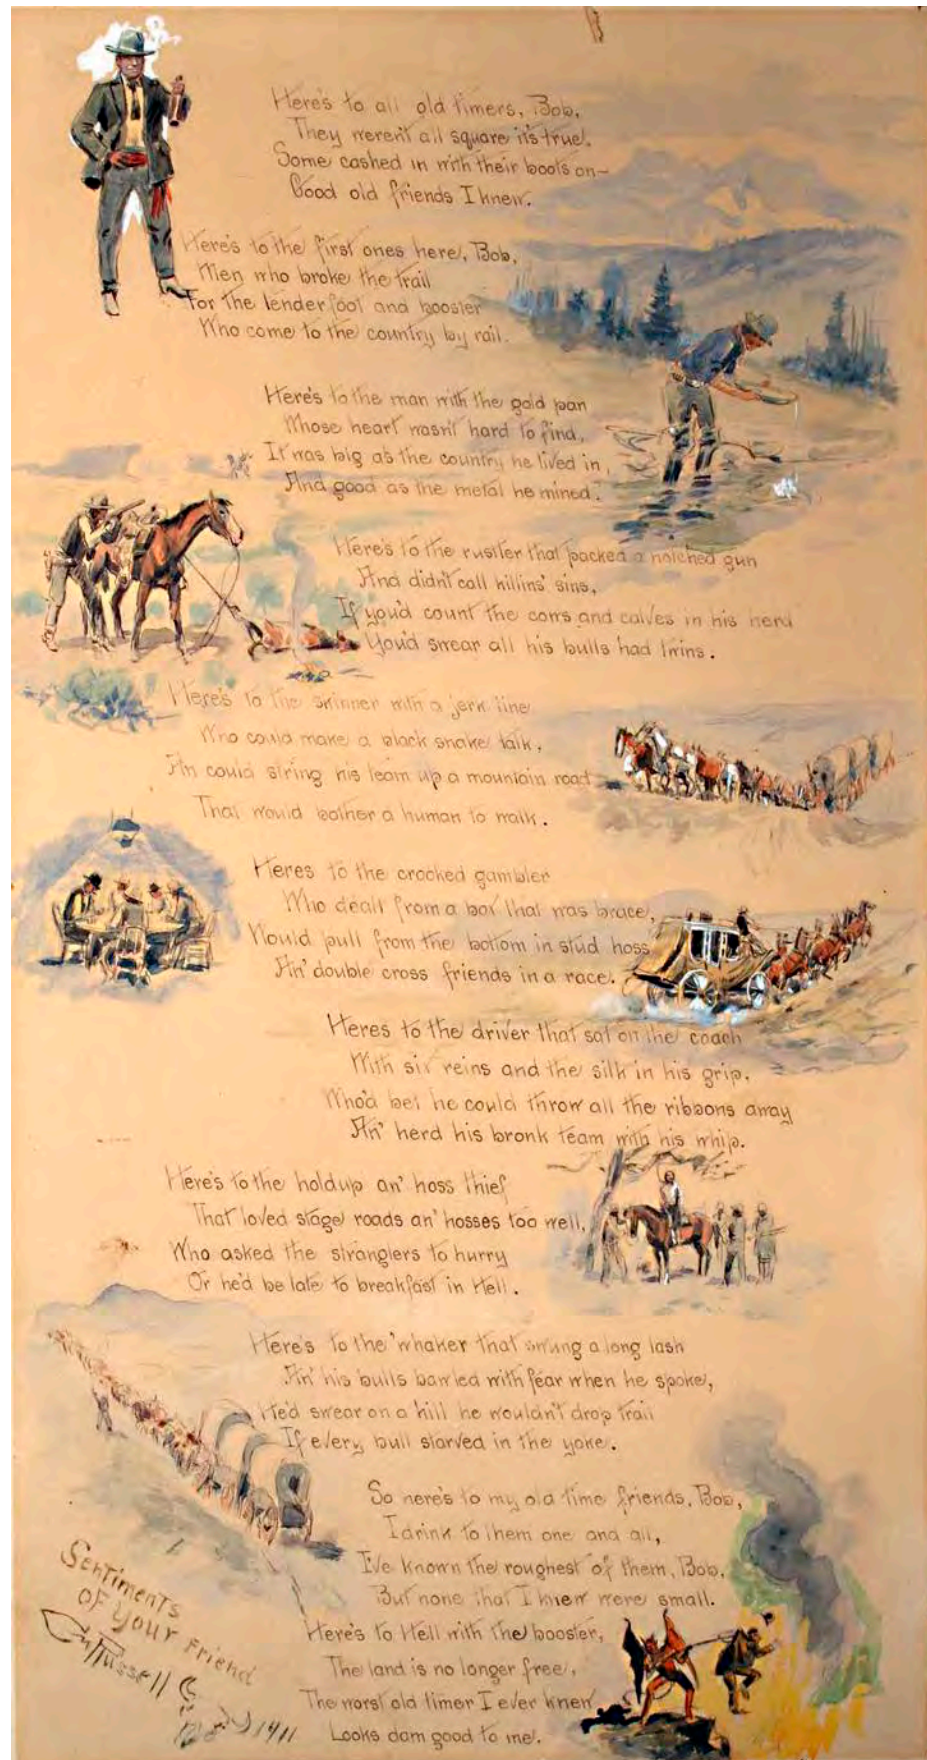 Here's to all old timers, Bob,
They weren't all square it's true,
Some cashed in with their boots on-
Good old friends I knew.
Here's to the first ones here, Bob,
Men who broke the trail
For the tenderfoot and booster
Who come to the country by rail.
Here's to the man with the gold pan
Whose heart wasn't hard to find,
It was big as the country he lived in,
And good as the metal he mined.
Here's to the rustler that packed a notched gun
And didn't call killins' sins,
If you'd count the cows and calves in his herd
You'd swear all his bulls had twins.
Here's to the skinner with a jerk line
Who could make a black snake talk,
An could string his team up a mountain road
That would bother a human to walk.
Heres to the crooked gambler
Who dealt from a box that was brace,
Would pull from the bottom in stud hoss
An' double cross friends in a race.
Heres to the driver that sat on the coach
With six reins and the silk in his grip,
Who'd bet he could throw all the ribbons away
An' herd his bronk team with his whip.
Here's to the holdup an' hoss thief
That loved stage roads an' hosses too well,
Who asked the stranglers to hurry
Or he'd be late to breakfast in Hell.
Here's to the 'whaker that swung a long lash
An' his bulls bawled with fear when he spoke,
He'd swear on a hill he wouldn't drop trail
If every bull starved in the yoke.
So here's to my old time friends, Bob,
I drink to them one and all,
I've known the roughest of them, Bob,
But none that I knew were small.
Here's to Hell with the booster,
The land is no longer free,
The worst old timer I ever knew
Looks dam good to me.
Sentiments
of your friend
CM Russell
1911